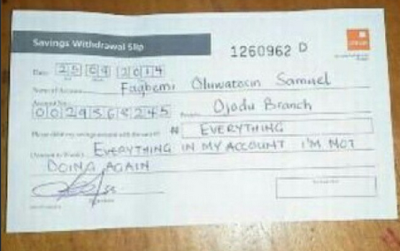 Savings Withdrawal Slip
1260962 D
Date: 25 09 2014
Name of Account: Fagbemi Oluwatosin Samuel
Ojodu Branch
Please debit my savings account with the sum of ₦ EVERYTHING
(Amount in Words) EVERYTHING IN MY ACCOUNT I'M NOT
DOING AGAIN